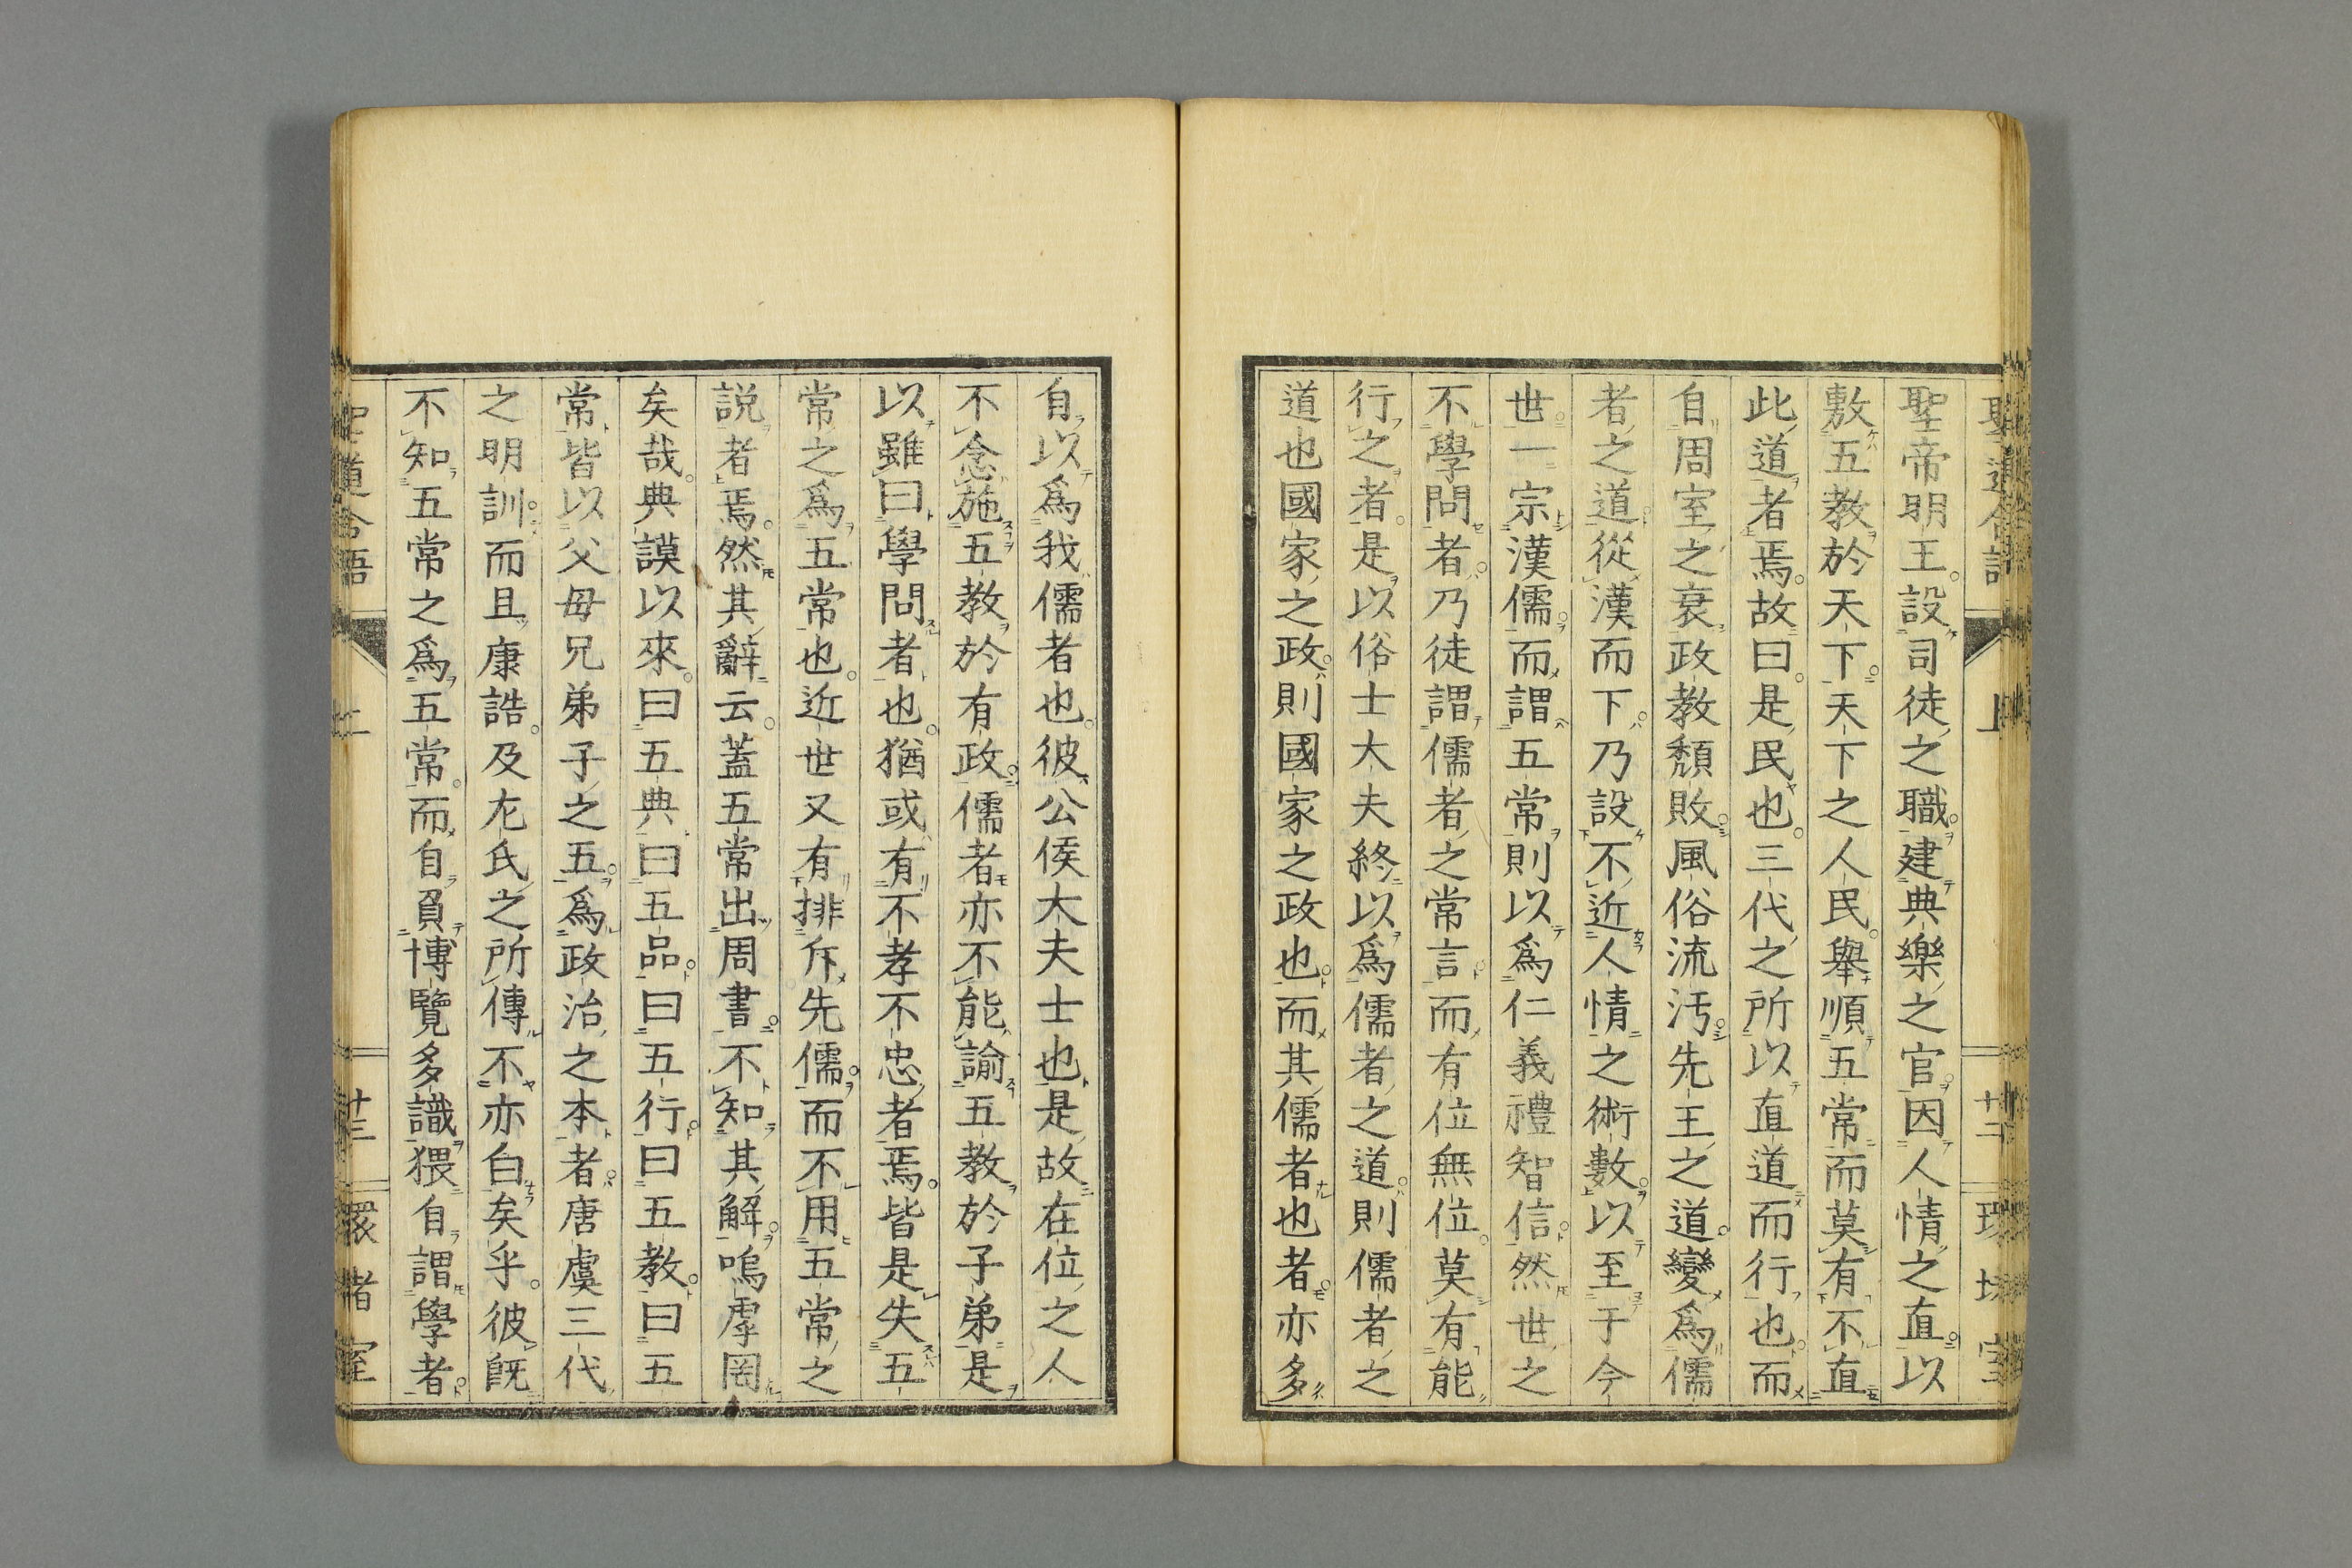 聖帝明王。設司徒之職。建典樂之官。因人情之直。以
敷五教於天下。天下之人民。舉順五常而莫有不直
此道者焉。故曰。是民也。三代之所以直道而行也。而
自周室之衰。政教頽敗。風俗流汚。先王之道。變爲儒
者之道。從漢而下。乃設不近人情之術數。以至于今
世。一宗漢儒。而謂五常。則以爲仁義禮智信。然世之
不學問者。乃徒謂儒者之常言。而有位無位。莫有能
行之者。是以俗士大夫終以爲儒者之道。則儒者之
道也國家之政。則國家之政也。而其儒者也者。亦多
自以爲我儒者也。彼公侯大夫士也。是故在位之人
不念施五教於有政。儒者亦不能諭五教於子弟。是
以雖曰學問者也。猶或有不孝不忠者焉。皆是失五
常之爲五常也。近世又有排斥先儒。而不用五常之
説者焉。然其辭云。蓋五常出周書。不知其解。嗚虖罔
矣哉。典謨以來。曰五典。曰五品。曰五行。曰五教。曰五
常。皆以父母兄弟子之五。爲政治之本者。唐虞三代
之明訓。而且康誥。及左氏之所傳。不亦白矣乎。彼既
不知五常之爲五常。而自負博覽多識。猥自謂學者。
上
十二
十三